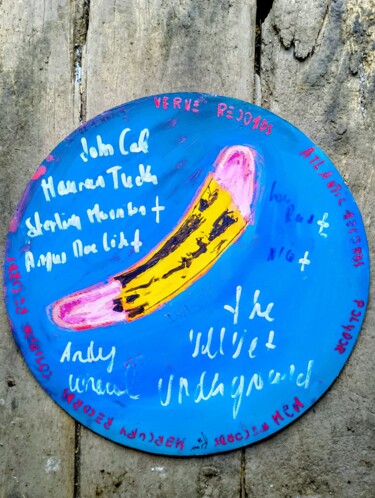 VERVE RECORDS
John Cal
Maureen Tuck
Sterling Morrison †
Angus Mac Lise †
Lou
Reed †
NICO †
the
Velvet
Underground
Andy
Warhol
ATLANTIC RECORDS
POLYDOR
MGM RECORDS
MERCURY RECORDS